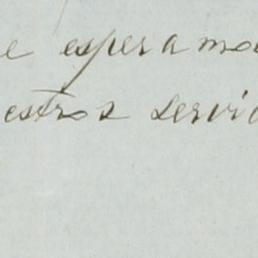 e esperamo
estros servic